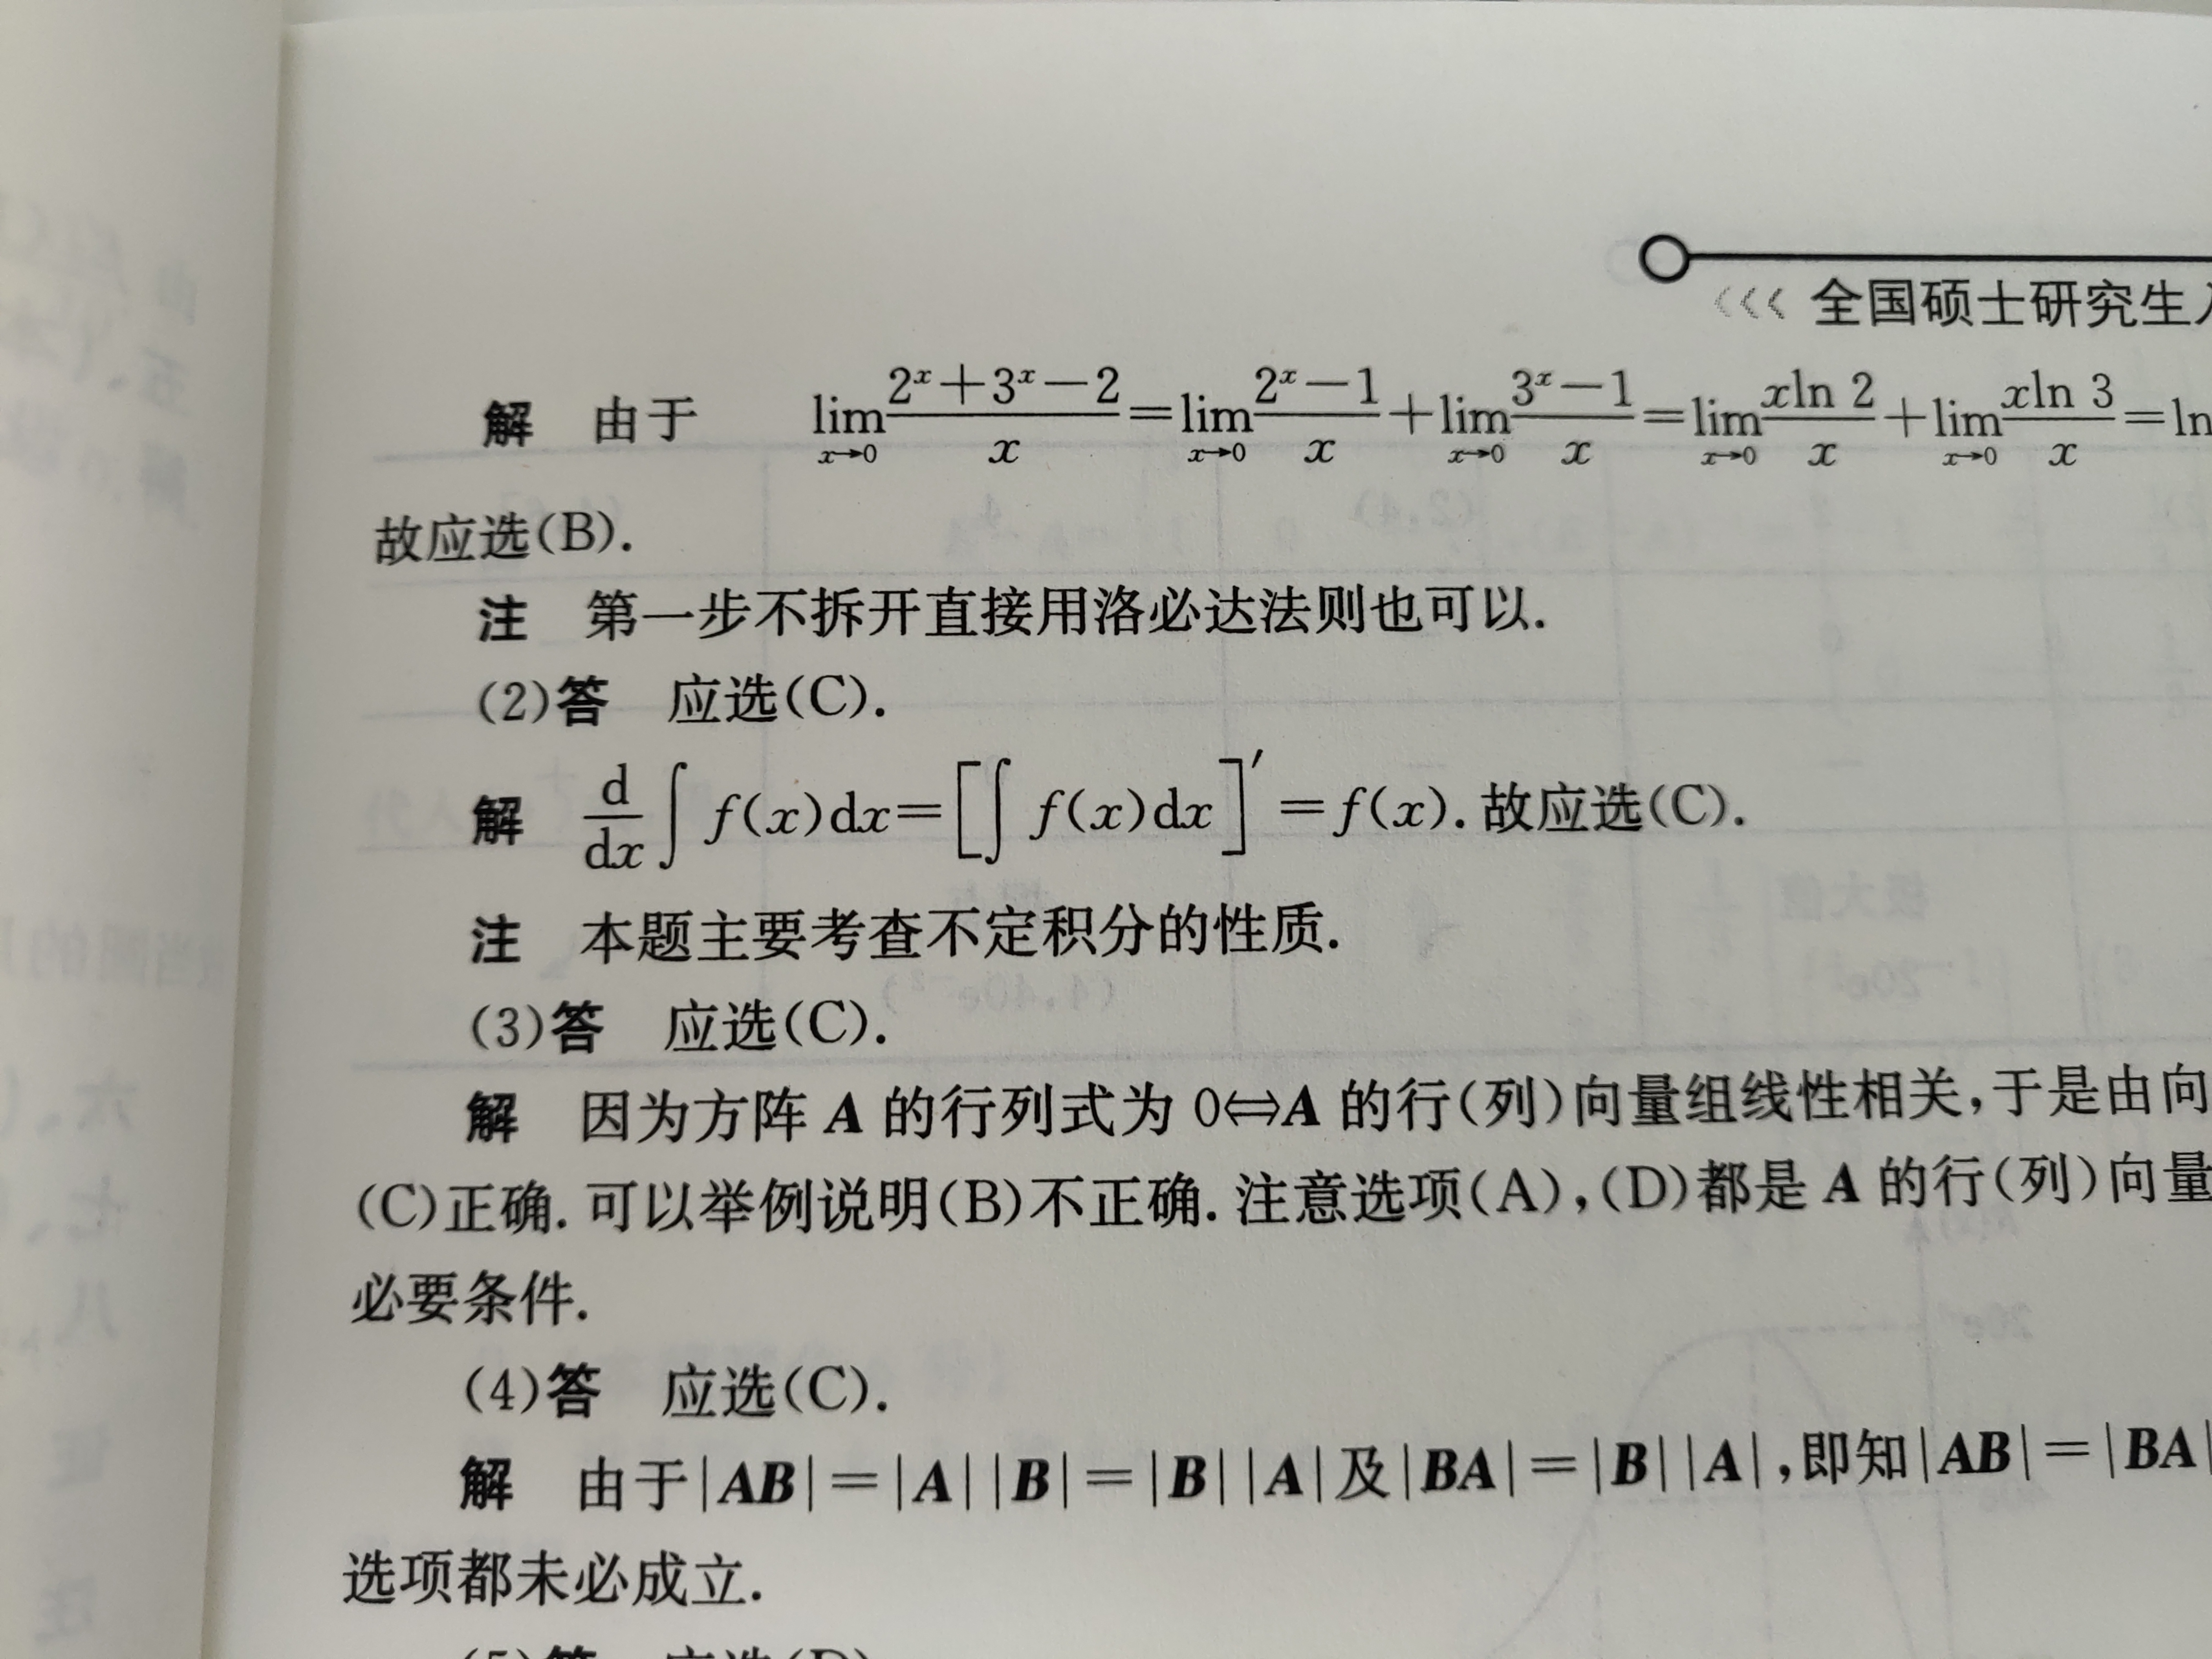 《《 全国硕士研究生
解 由于 lim_{x→0} (2^x+3^x−2)/x = lim_{x→0} (2^x−1)/x + lim_{x→0} (3^x−1)/x = lim_{x→0} (xln 2)/x + lim_{x→0} (xln 3)/x = ln
故应选(B).
注 第一步不拆开直接用洛必达法则也可以.
(2)答 应选(C).
解 d/dx ∫ f(x)dx=[∫ f(x)dx]′=f(x). 故应选(C).
注 本题主要考查不定积分的性质.
(3)答 应选(C).
解 因为方阵 A 的行列式为 0⇔A 的行(列)向量组线性相关,于是由向
(C)正确. 可以举例说明(B)不正确. 注意选项(A),(D)都是 A 的行(列)向量
必要条件.
(4)答 应选(C).
解 由于|AB|=|A||B|=|B||A|及|BA|=|B||A|,即知|AB|=|BA|
选项都未必成立.
(5)答 应选(D)